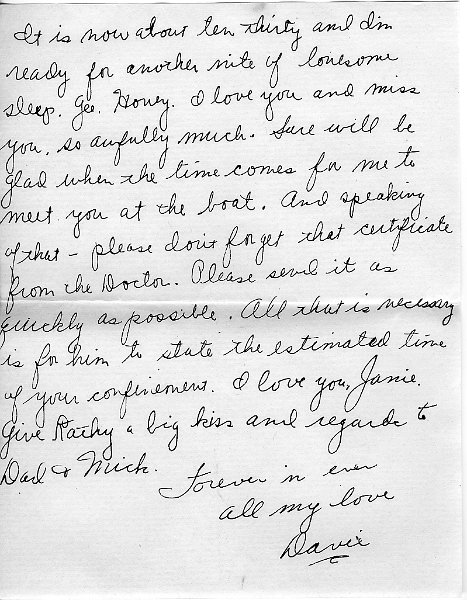 It is now about ten thirty and I'm
ready for another nite of lonesome
sleep. Gee. Honey. I love you and miss
you, so awfully much. Sure will be
glad when the time comes for me to
meet you at the boat. And speaking
of that - please don't forget that certificate
from the Doctor. Please send it as
quickly as possible. All that is necessary
is for him to state the estimated time
of your confinement. I love you, Janie.
Give Kathy a big kiss and regards to
Dad & Mick.
Forever in ever
all my love
Davie